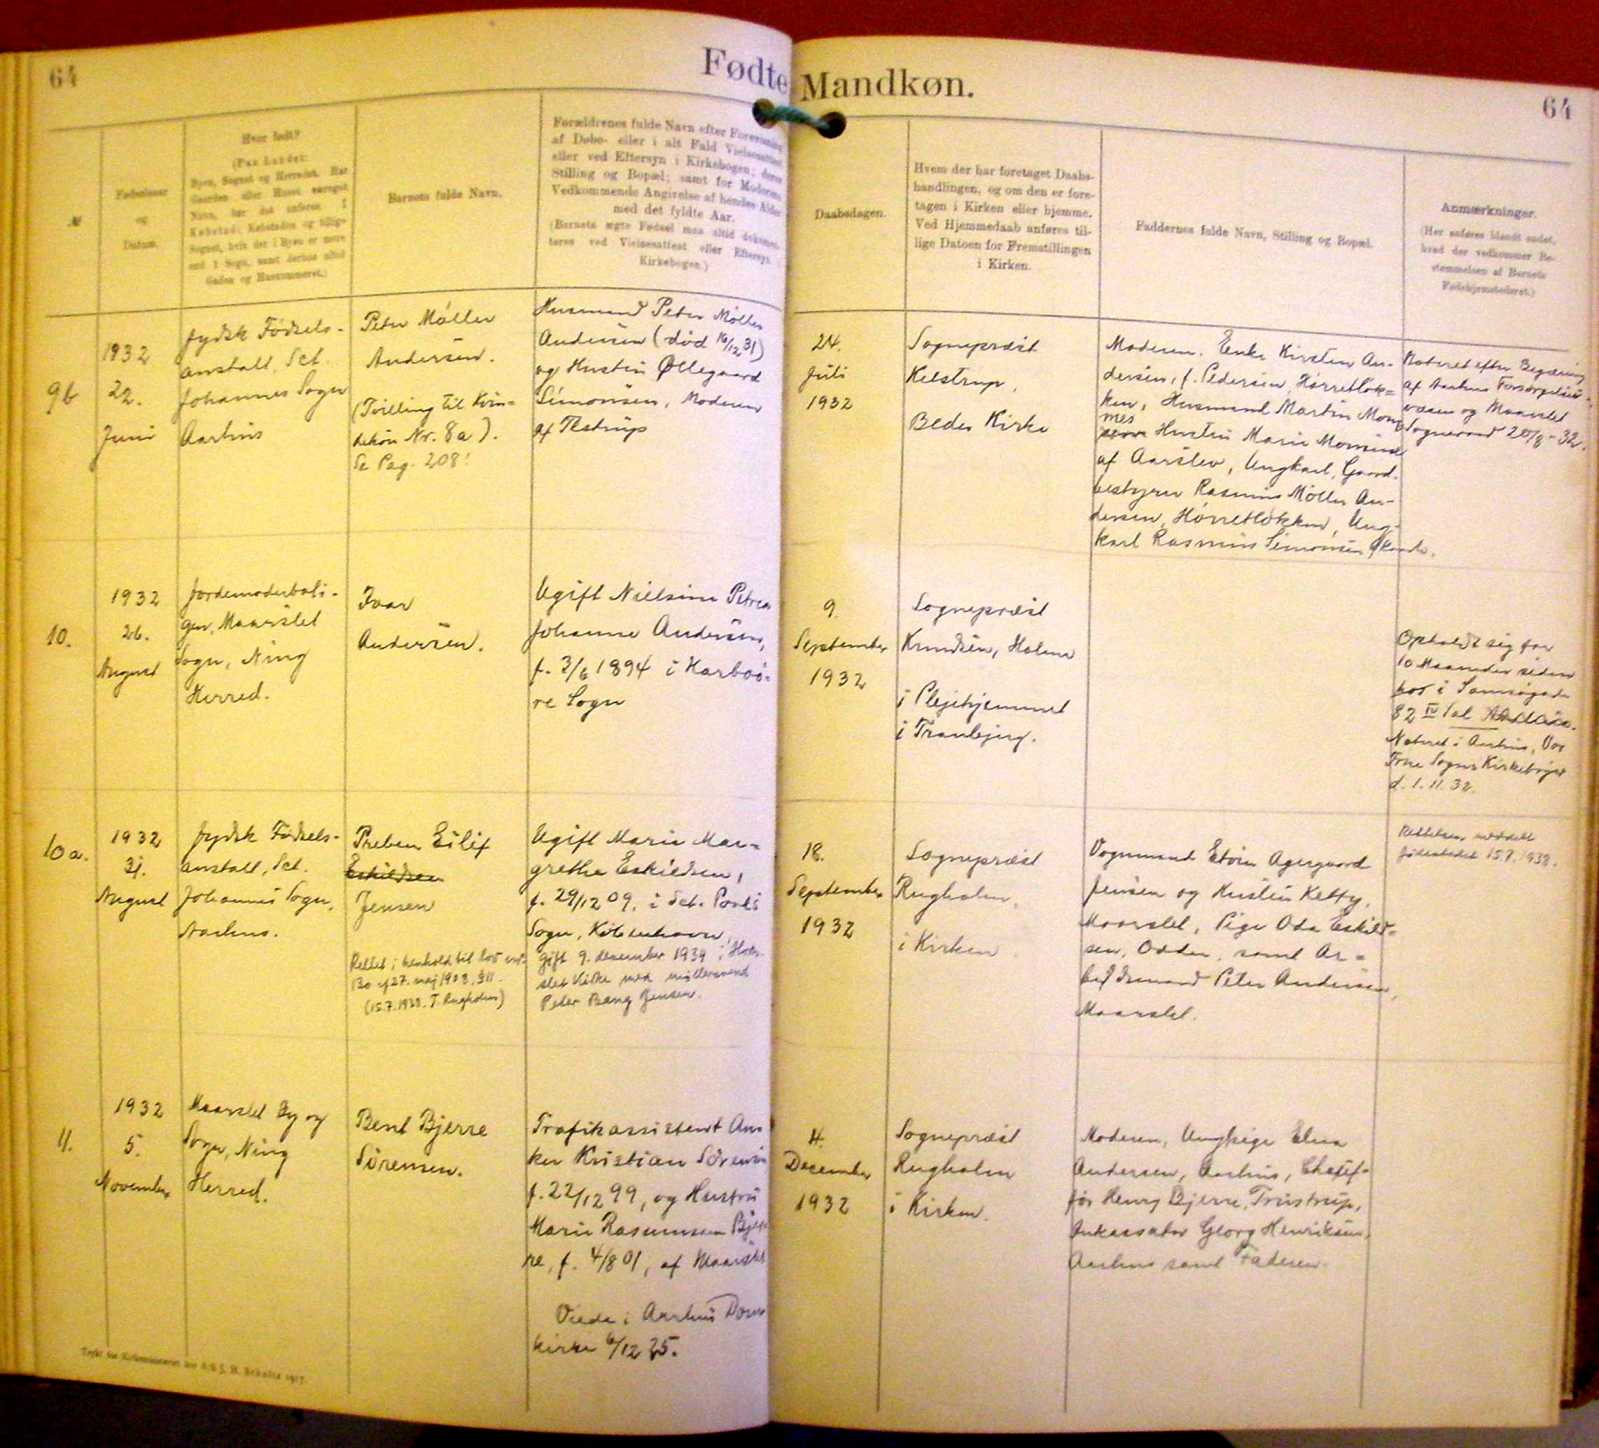 64
Fødte Mandkøn.
64
№
Fødselsaar
og
Datum.
Hvor født?
(Paa Landet:
Byen, Sognet og Herredet. Har
Gaarden eller Huset særeget
Navn, bør det anføres. I
Købstad: Købstaden og tillige
Sognet, hvis der i Byen er mere
end 1 Sogn, samt derhos altid
Gaden og Husnumeret.)
Barnets fulde Navn.
Forældrenes fulde Navn efter Forevisning
af Døbe- eller i alt Fald Vielsesattest
eller ved Eftersyn i Kirkebogen; deres
Stilling og Bopæl; samt for Moderens
Vedkommende Angivelse af hendes Alder
med det fyldte Aar.
(Barnets ægte Fødsel maa altid dokumen-
teres ved Vielsesattest eller Eftersyn i
Kirkebogen.)
Daabsdagen.
Hvem der har foretaget Daabs-
handlingen, og om den er fore-
tagen i Kirken eller hjemme.
Ved Hjemmedaab anføres til-
lige Datoen for Fremstillingen
i Kirken.
Faddernes fulde Navn, Stilling og Bopæl.
Anmærkninger.
(Her anføres blandt andet,
hvad der vedkommer Be-
stemmelsen af Barnets
Fødehjemstederet.)
9b
1932
22.
Juni
Jydsk Fødsels-
anstalt, Sct.
Johannes Sogn
Aarhus
Peter Møller
Andersen.
(Tvilling til Kvin-
dekøn Nr. 8a).
Se Pag. 208!
Husmand Peter Møller
Andersen (død 16/12 31)
og Hustru Øllegaard
Simonsen, Moderen
af Testrup
24.
Juli
1932
Sognepræst
Kelstrup,
Beder Kirke
Moderen. Enke Kirsten An-
dersen, f. Pedersen Hørretløk-
ken, Husmand Martin Mom
mes
Hustru Marie
af Aarslev, Ungkarl, Gaard-
bestyrer Rasmus Møller An-
dersen, Hørretløkken, Ung-
karl Rasmus Simonsen,
Noteret efter Begæring
af Aarhus Forsørgelses-
væsen og Maarslet
Sogneraad 20/8-32.
10.
1932
26.
August
Jordemoderboli-
gen, Maarslet
Sogn, Ning
Herred.
Ivar
Andersen.
Ugift Nielsine Petrea
Johanne Andersen,
f. 3/6 1894 i Harboø-
re Sogn
9.
September
1932
Sognepræst
Knudsen, Holme
i Plejehjemmet
i Tranbjerg.
Opholdt sig for
10 Maaneder siden
hos i Samsøgade
82 IV Sal
Noteret i Aarhus, Vor
Frue Sogns Kirkebøger
d. 1.11.32.
10a.
1932
31.
August
Jydsk Fødsels-
anstalt, Sct.
Johannes Sogn,
Aarhus.
Preben Eilif
Eskildsen
Jensen
Rettet i henhold til lov
af 27. maj 1908, §11.
(15.7.1938. T. Rugholm)
Ugift Marie Mar-
grethe Eskildsen,
f. 29/12 09, i Sct. Pouls
Sogn, København,
gift 9. december 1934 i
slet Kirke med møllersvend
Peter Bang Jensen.
18.
September
1932
Sognepræst
Rugholm,
i Kirken
Vognmand Edvin Agergaard
Jensen og Hustru Ketty,
Maarslet, Pige Oda Eskild-
sen, Odder, samt Ar-
bejdsmand Peter Andersen,
Maarslet.
Rettelsen meddelt
fødestedet 15.7.1938.
11.
1932
5.
November
Maarslet By og
Sogn, Ning
Herred.
Bent Bjerre
Sørensen.
Trafikassistent An-
ker Kristian Sørensen
f. 22/12 99, og Hustru
Marie Rasmussen Bjer-
re, f. 4/8 01, af Maarslet
Viede i Aarhus Dom-
kirke 6/12 25.
4.
December
1932
Sognepræst
Rugholm
i Kirken.
Moderen, Ungpige Elna
Andersen, Aarhus, Chauf-
før Henry Bjerre, Trustrup,
Inkassator Georg Henriksen,
Aarhus samt Faderen.
Trykt for Kirkeministeriet hos A/S J. H. Schultz 1917.